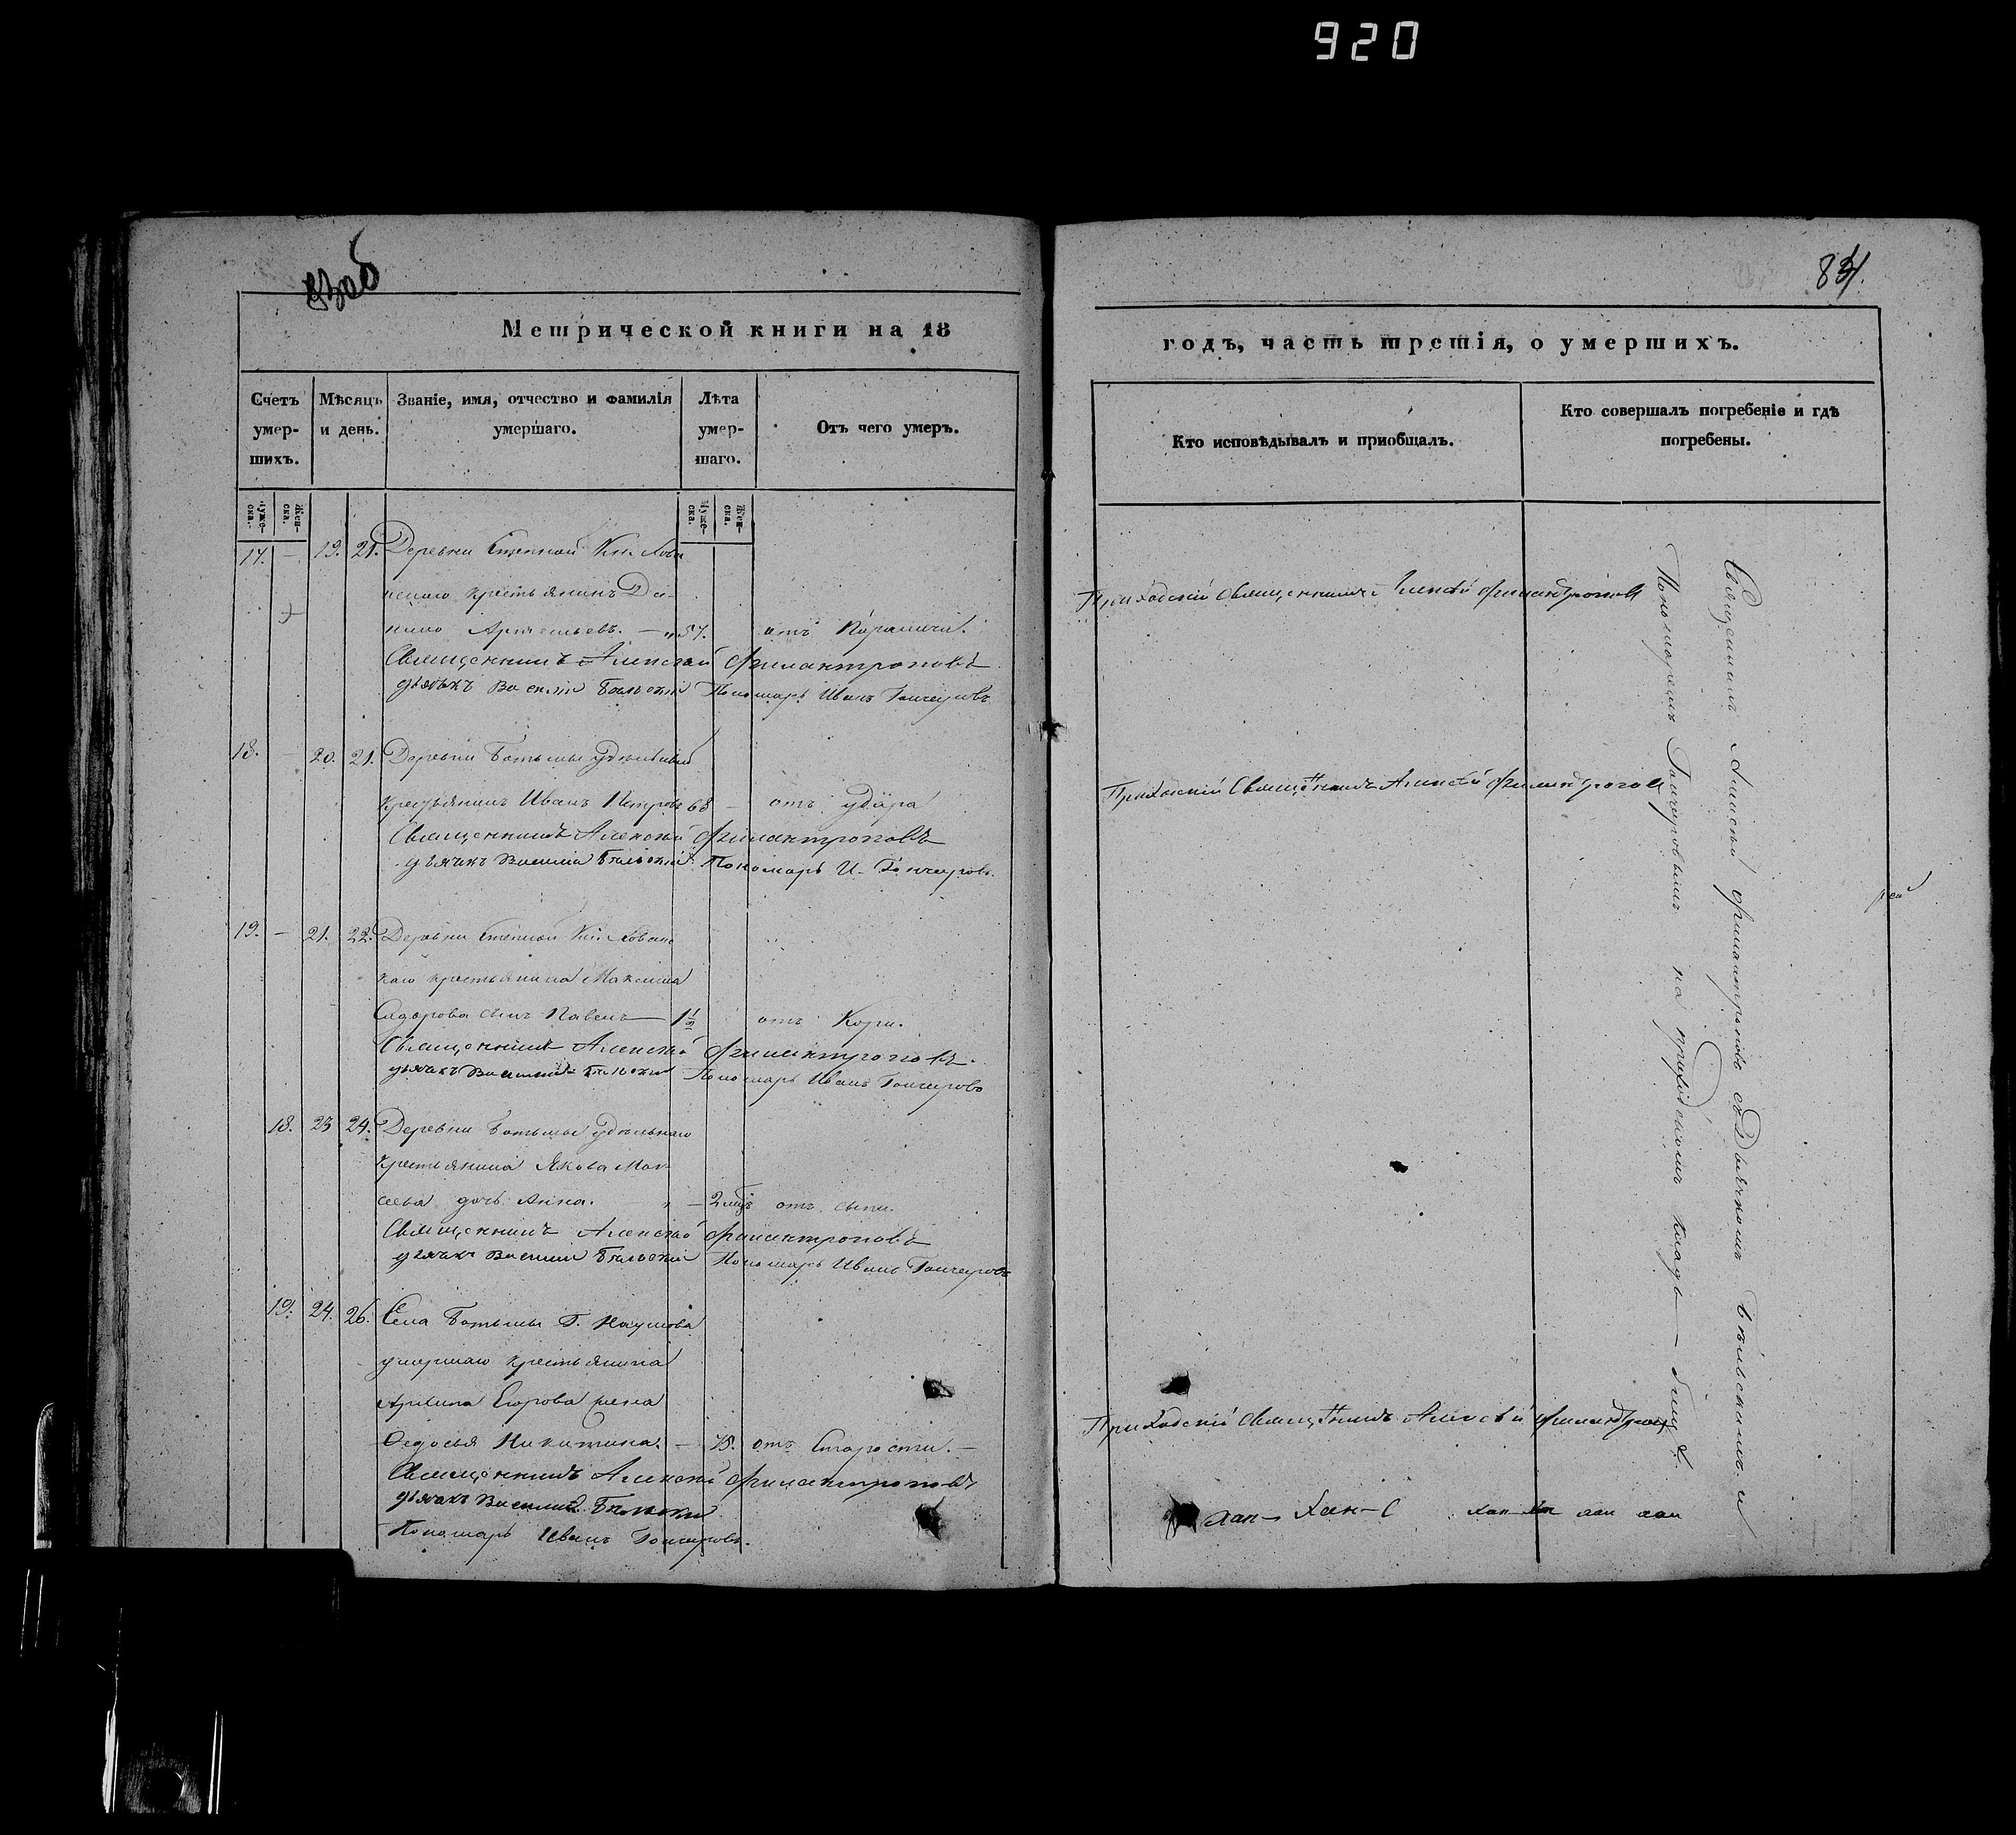 920
83об
84.
Метрической книги на 18
годъ, часть третія, о умершихъ.
Счетъ умер-шихъ.
Мѣсяцъ и день.
Званіе, имя, отчество и фамилія умершаго.
Лѣта умер-шаго.
Отъ чего умеръ.
Кто исповѣдывалъ и пріобщалъ.
Кто совершалъ погребеніе и гдѣ погребены.
Муже-ска.
Жен-ска.
Муже-ска.
Жен-ска.
17. — 19. 21. Деревни Степной Кн. Хован
скаго крестьянинъ Да-
нило — „ 57. отъ
Священникъ Алексѣй Филантроповъ
дьячекъ Василій Бѣльскій Пономарь Иванъ Гончаровъ
Приходскій Священникъ Алексѣй Филантроповъ
18. — 20. 21. Деревни удѣльный
крестьянинъ Иванъ Петровъ 68 — отъ удара
Священникъ Алексѣй Филантроповъ
дьячекъ Василій Бѣльскій Пономарь И. Гончаровъ.
Приходскій Священникъ Алексѣй Филантроповъ
19. — 21. 22. Деревни Степной Кн. Хованс
каго крестьянина Максима
Сидорова сынъ Павелъ — 1 1/2 отъ Кори.
Священникъ Алексѣй Филантроповъ.
дьячекъ Василій Бѣльскій Пономарь Иванъ Гончаровъ
18. 23 24. Деревни удѣльнаго
крестьянина Якова
дочь Анна. „ — 2 мцъ отъ сыпи.
Священникъ Алексѣй Филантроповъ
дьячекъ Василій Бѣльскій Пономарь Иванъ Гончаровъ
19. 24. 26. Села Г. Наумова
умершаго крестьянина
Архипа Егорова жена
Ѳедосья Никитина. — 75. отъ Старости. —
Священникъ Алексѣй Филантроповъ
дьячекъ Василій Бѣльскій
Пономарь Иванъ Гончаровъ.
Приходскій Священникъ Алексѣй
Священникъ Алексѣй Филантроповъ съ Дьячкомъ Бѣльскимъ и
Пономаремъ Гончаровымъ на приходскомъ кладбищѣ.